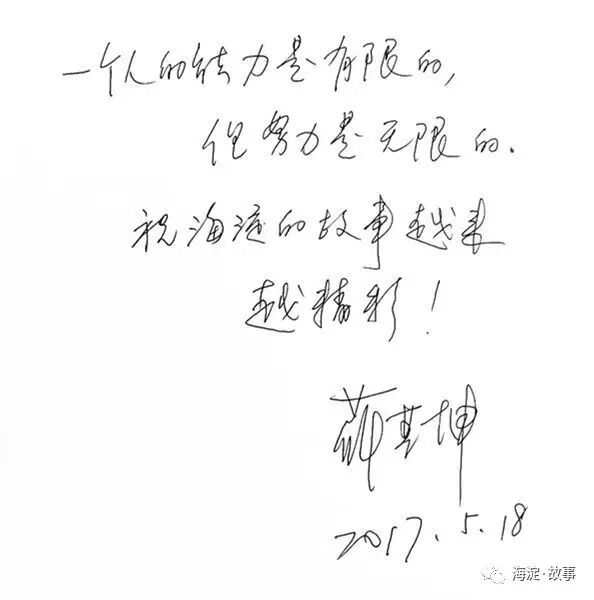 一个人的能力是有限的,
但努力是无限的.
祝海淀的故事越来
越精彩!
薛其坤
2017.5.18
海淀·故事